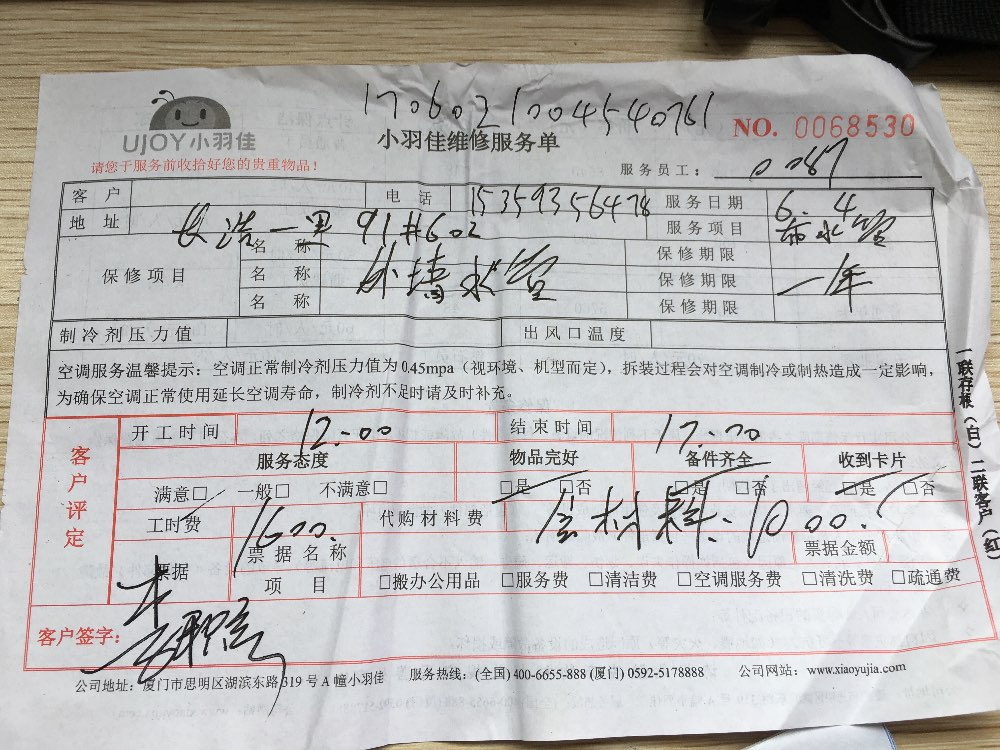 17060210045407​61
UJOY小羽佳
小羽佳维修服务单
NO. 0068530
请您于服务前收拾好您的贵重物品！
服务员工： 0087
客 户 电 话 15359356478 服务日期 6. 4
地 址 长浩一里91#602 服务项目 水管
保修项目 名 称 保修期限
名 称 外墙水管 保修期限 一年
名 称 保修期限
制冷剂压力值 出风口温度
空调服务温馨提示：空调正常制冷剂压力值为0.45mpa（视环境、机型而定），拆装过程会对空调制冷或制热造成一定影响，
为确保空调正常使用延长空调寿命，制冷剂不足时请及时补充。
客户评定
开工时间 12:00 结束时间 17:00
服务态度 物品完好 备件齐全 收到卡片
满意□ 一般□ 不满意□ □是 □否 □是 □否 □是 □否
工时费 1600. 代购材料费 含材料.
票据 票据名称 票据金额
项 目 □搬办公用品 □服务费 □清洁费 □空调服务费 □清洗费 □疏通费
客户签字：
公司地址：厦门市思明区湖滨东路319号A幢小羽佳 服务热线：(全国) 400-6655-888 (厦门) 0592-5178888 公司网站：www.xiaoyujia.com
一联存根（白）二联客户（红）